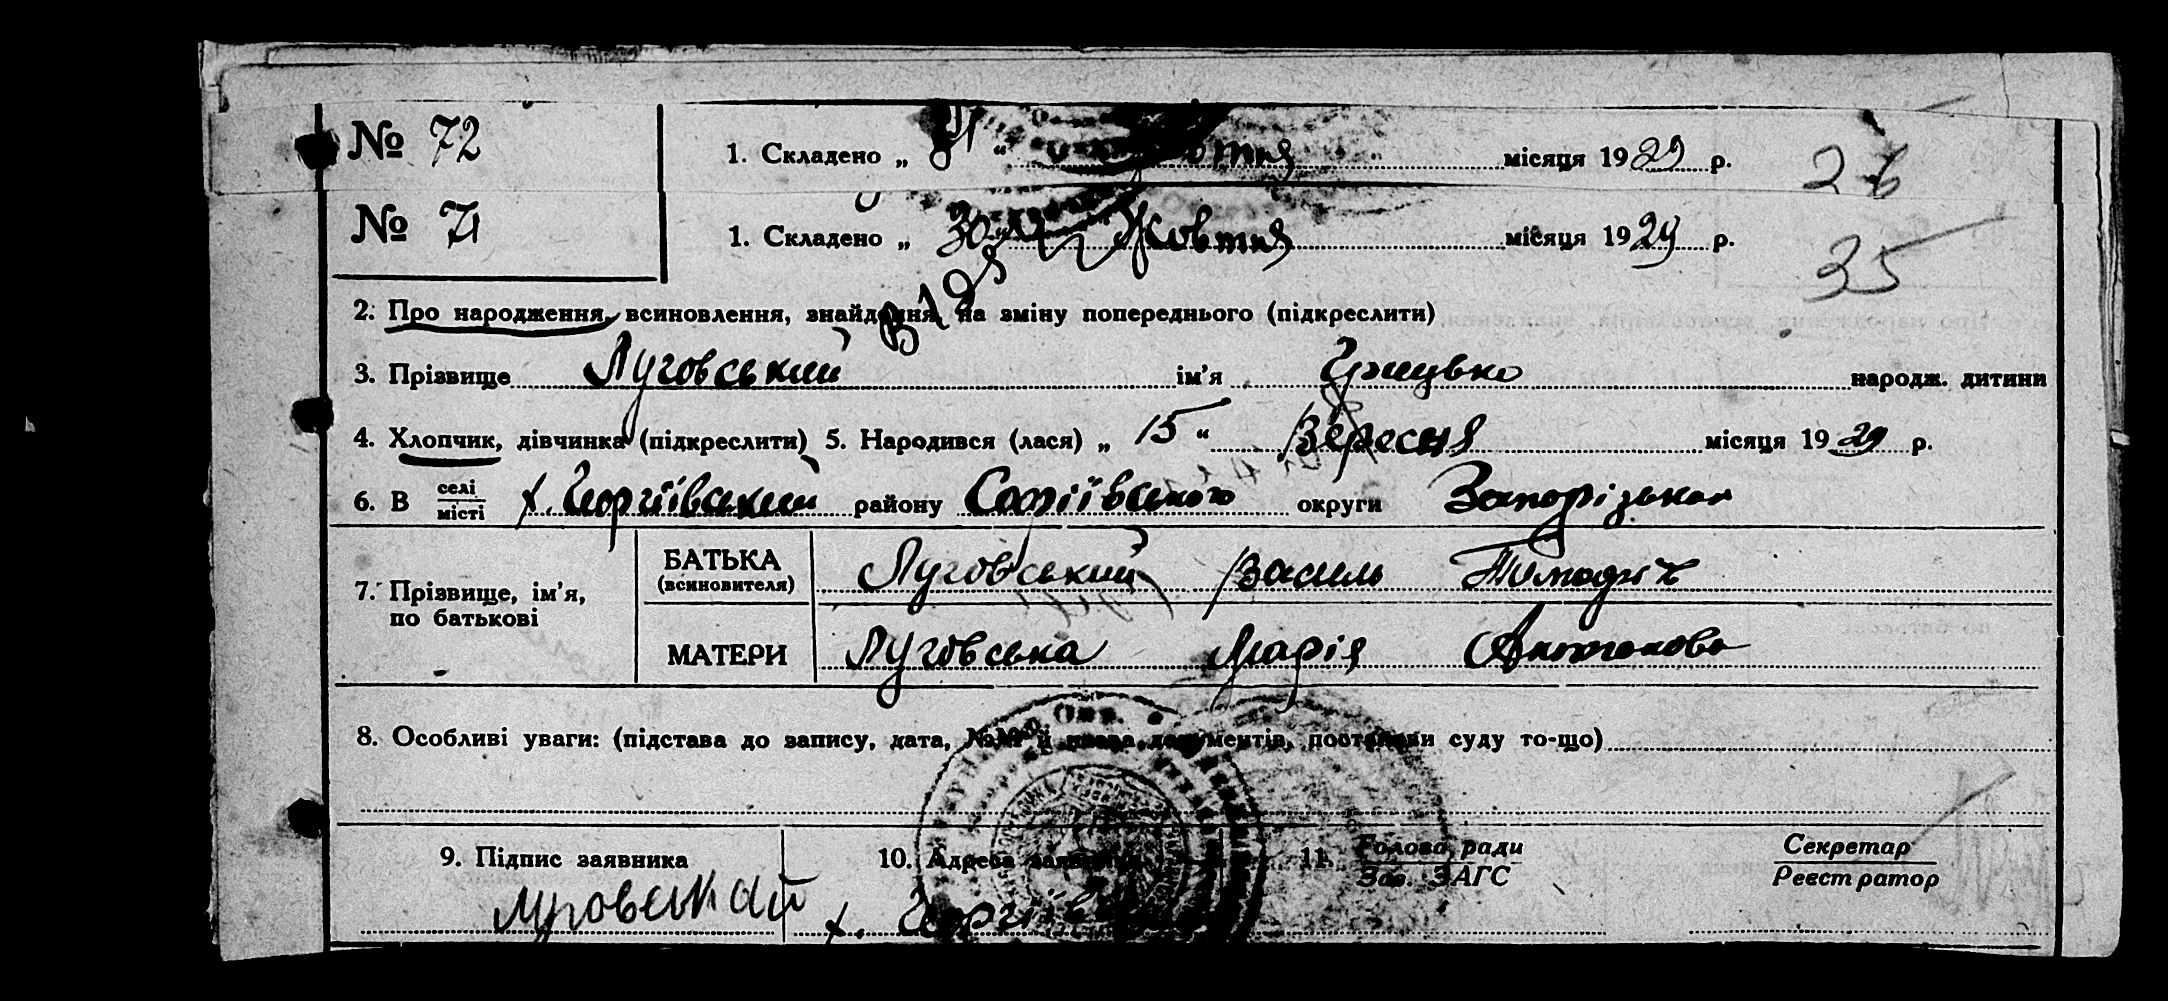 № 72
1. Складено „ “ місяця 1929 р.
26
№ 71
1. Складено „ 30 “ Жовтня місяця 1929 р.
35
2. Про народження, всиновлення, знайдення, на зміну попереднього (підкреслити)
3. Прізвище Луговський ім'я Грицько народж. дитини
4. Хлопчик, дівчинка (підкреслити) 5. Народився (лася) „ 15 “ Вересня місяця 1929 р.
6. В селі місті х. Георгіївський району Софіївського округи Запорізької
7. Прізвище, ім'я, по батькові
БАТЬКА (всиновителя) Луговський Василь
МАТЕРИ Луговська Марія Антонова
8. Особливі уваги: (підстава до запису, дата, й назва документів, постанови суду то-що)
9. Підпис заявника 10. Адреса заявника 11. Голова ради Зав. ЗАГС Секретар Реєстратор
х.